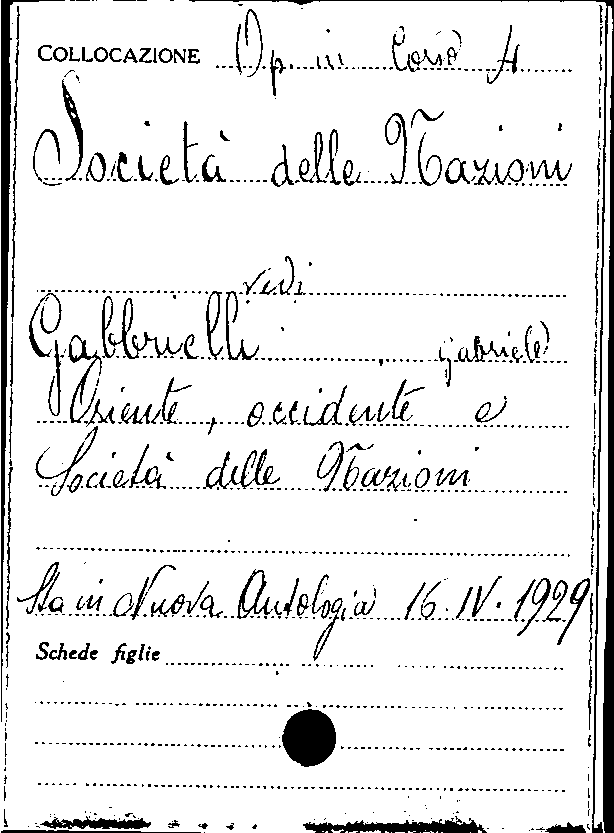 COLLOCAZIONE Op. in Corso 4
Società delle Nazioni
vedi
Gabbrielli, gabriele
Oriente, occidente e
Società delle Nazioni
Sta in Nuova Antologia 16.IV.1929
Schede figlie